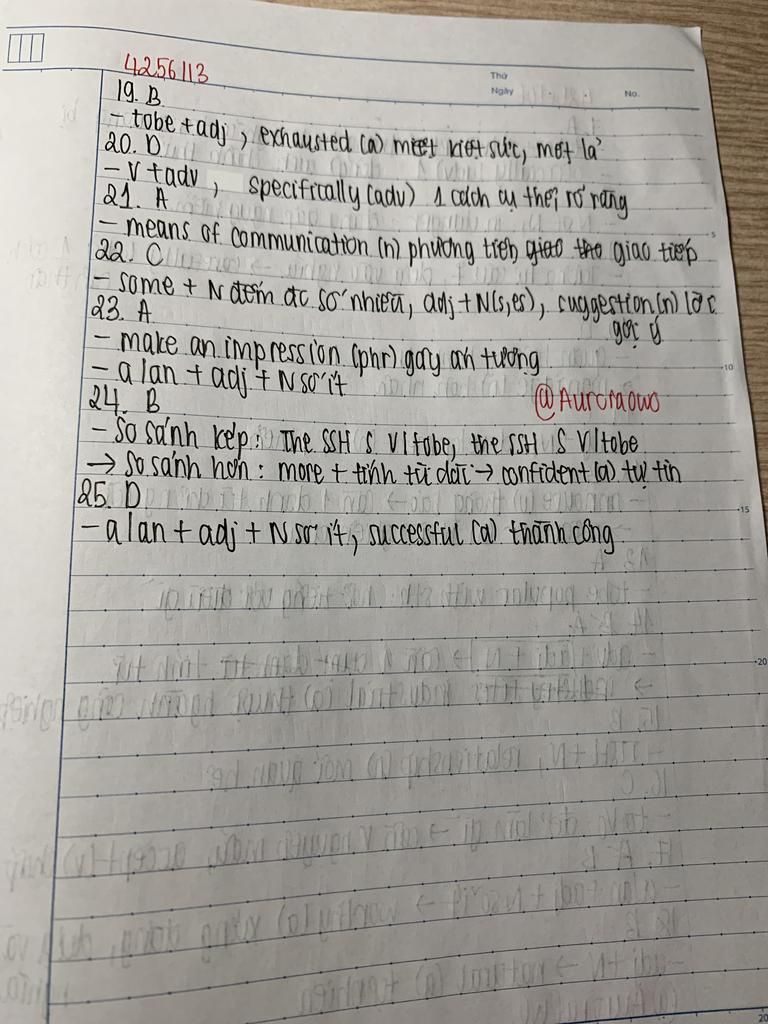 4256113
Thứ
Ngày
No.
19. B
- tobe + adj, exhausted (a) kiệt sức, mệt lả
20. D
- V + adv, specifically (adv) 1 cách cụ thể, rõ ràng
21. A
- means of communication (n) phương tiện giao tiếp
22. C
- some + N đếm đc số nhiều, adj + N(s,es), suggestion (n) lời
gợi ý
23. A
- make an impression (phr) gây ấn tượng
- a/an + adj + N số ít
24. B
@Auroraowo
- So sánh kép: The SSH S V/tobe, the SSH S V/tobe
→ So sánh hơn: more + tính từ dài → confident (a) tự tin
25. D
- a/an + adj + N số ít, successful (a) thành công
5
10
15
20